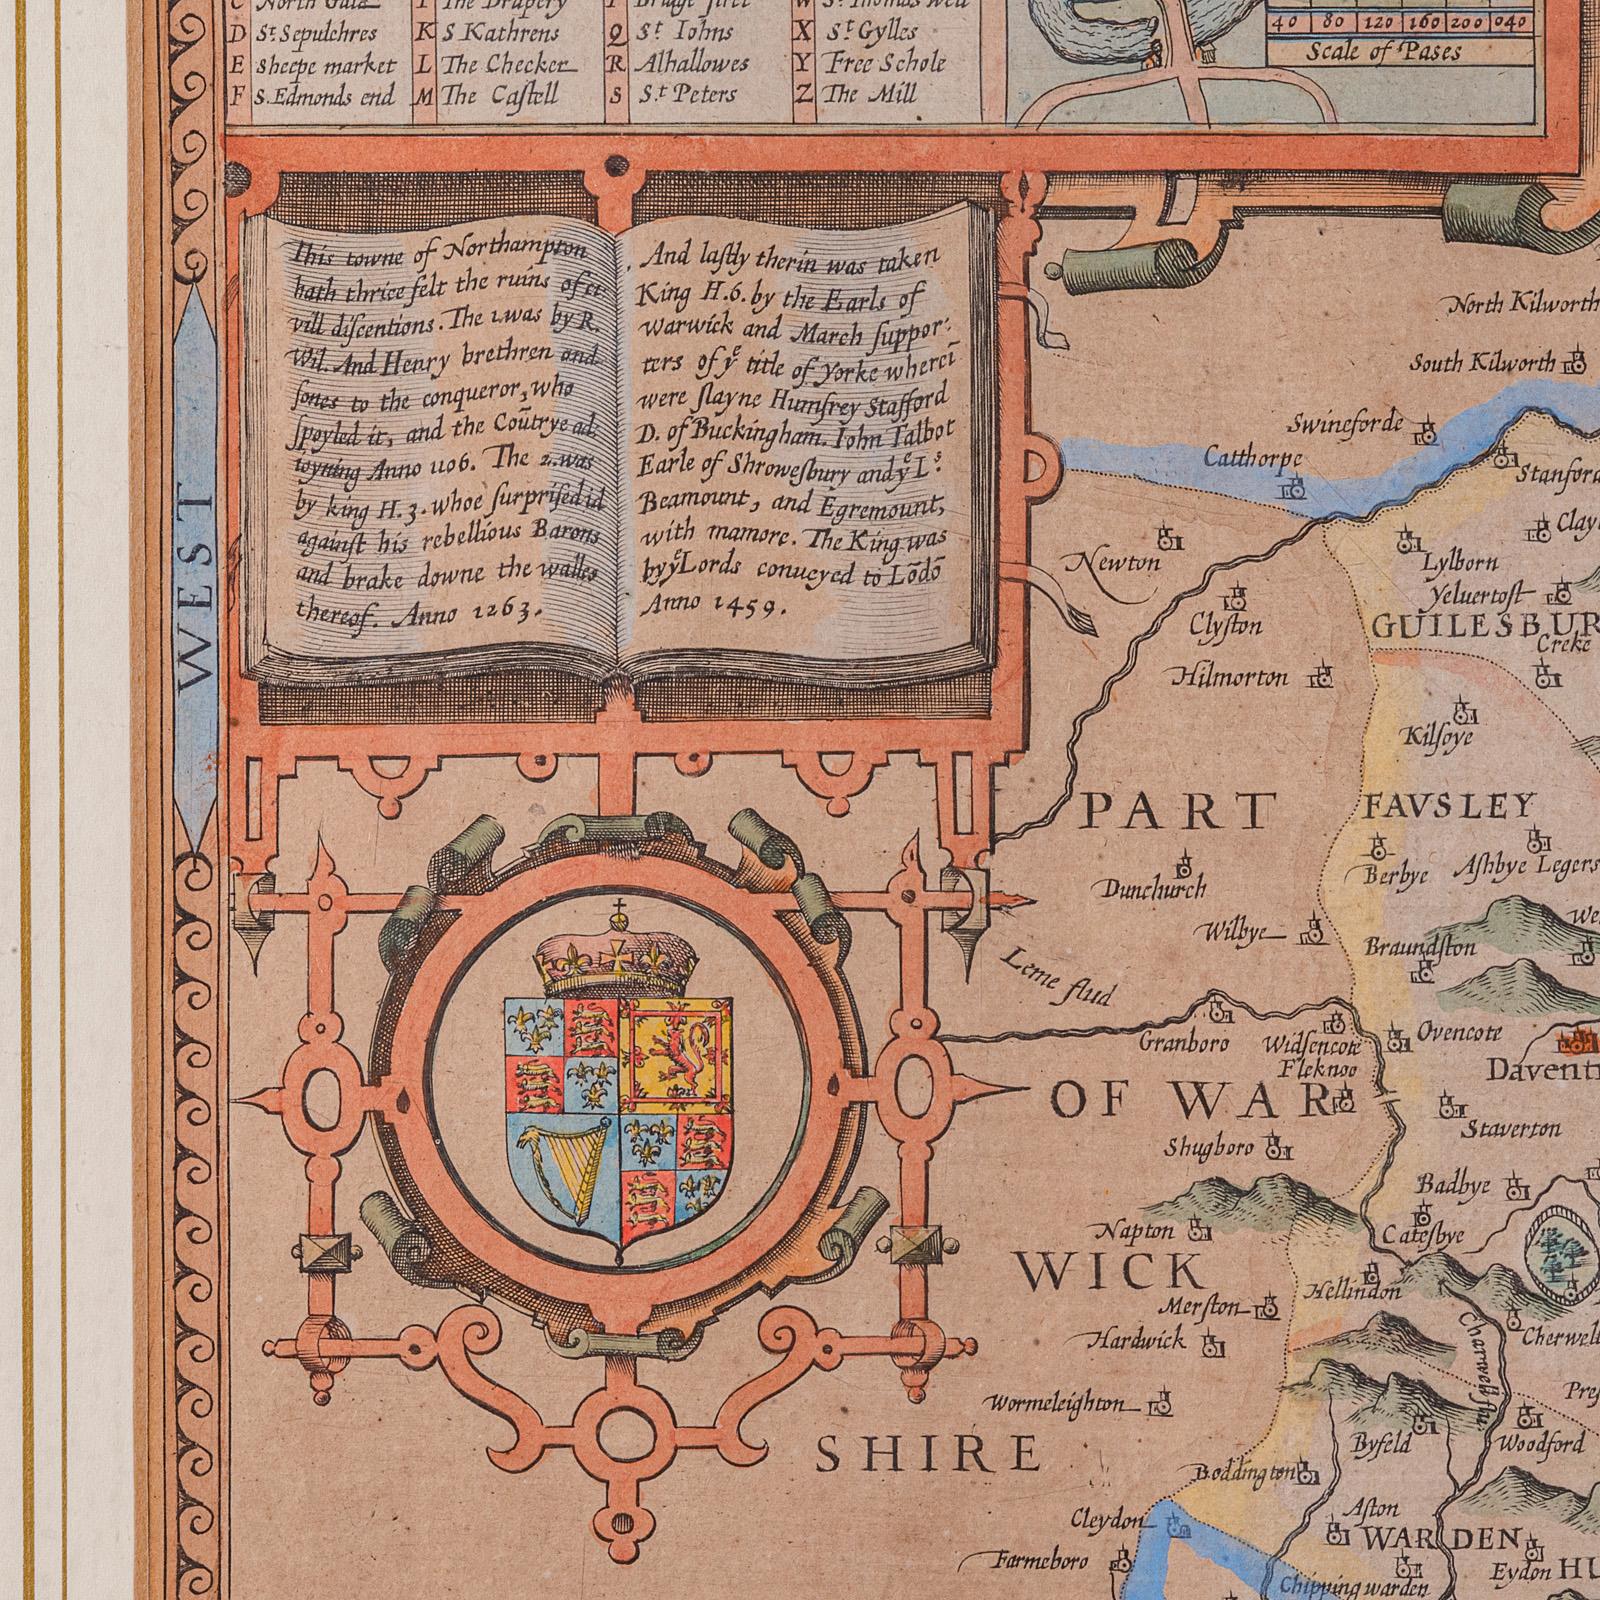 C North Gate I The Drapery P Bridge stret W St Thomas well
D St Sepulchres K S Kathrens Q St Iohns X St Gylles
E sheepe market L The Checker R Alhallowes Y Free Schole
F S. Edmonds end M The Caſtell S St Peters Z The Mill
40 80 120 160 200 040
Scale of Paſes
This towne of Northampton
hath thrice felt the ruins of ci
vill diſcentions. The 1. was by R.
Wil. And Henry brethren and
ſones to the conqueror, who
ſpoyled it, and the Coũtrye ad
ioyning Anno 1106. The 2. was
by king H.3. whoe ſurpriſed id
againſt his rebellious Barons
and brake downe the walles
thereof. Anno 1263.
And laſtly therin was taken
King H.6. by the Earls of
warwick and March ſuppor:
ters of yͤ title of Yorke whereī
were ſlayne Humfrey Stafford
D. of Buckingham. Iohn Talbot
Earle of Shrowesbury and yͤ Ls:
Beamount, and Egremount,
with mamore. The King was
by yͤ Lords conueyed to Lōdō
Anno 1459.
WEST
North Kilworth
South Kilworth
Swineforde
Catthorpe
Stanford
Clay
Newton
Lylborn
Yeluertoft
Clyſton
GUILESBUR
Creke
Hilmorton
Kilſbye
PART
FAVSLEY
Dunchurch
Berbye
Aſhbye Legers
Wilbye
We
Braundſton
Leme flud
Granboro
Widſencote
Ovencote
Fleknoo
Daventr
OF WAR
Staverton
Shugboro
Badbye
Napton
Cateſbye
WICK
Hellindon
Merſton
Charwell flu
Cherwell
Hardwick
Preſ
Wormeleighton
SHIRE
Byfeld
Woodford
Boddington
Aſton
Cleydon
WARDEN
Farmeboro
Eydon
HU
Chipping warden